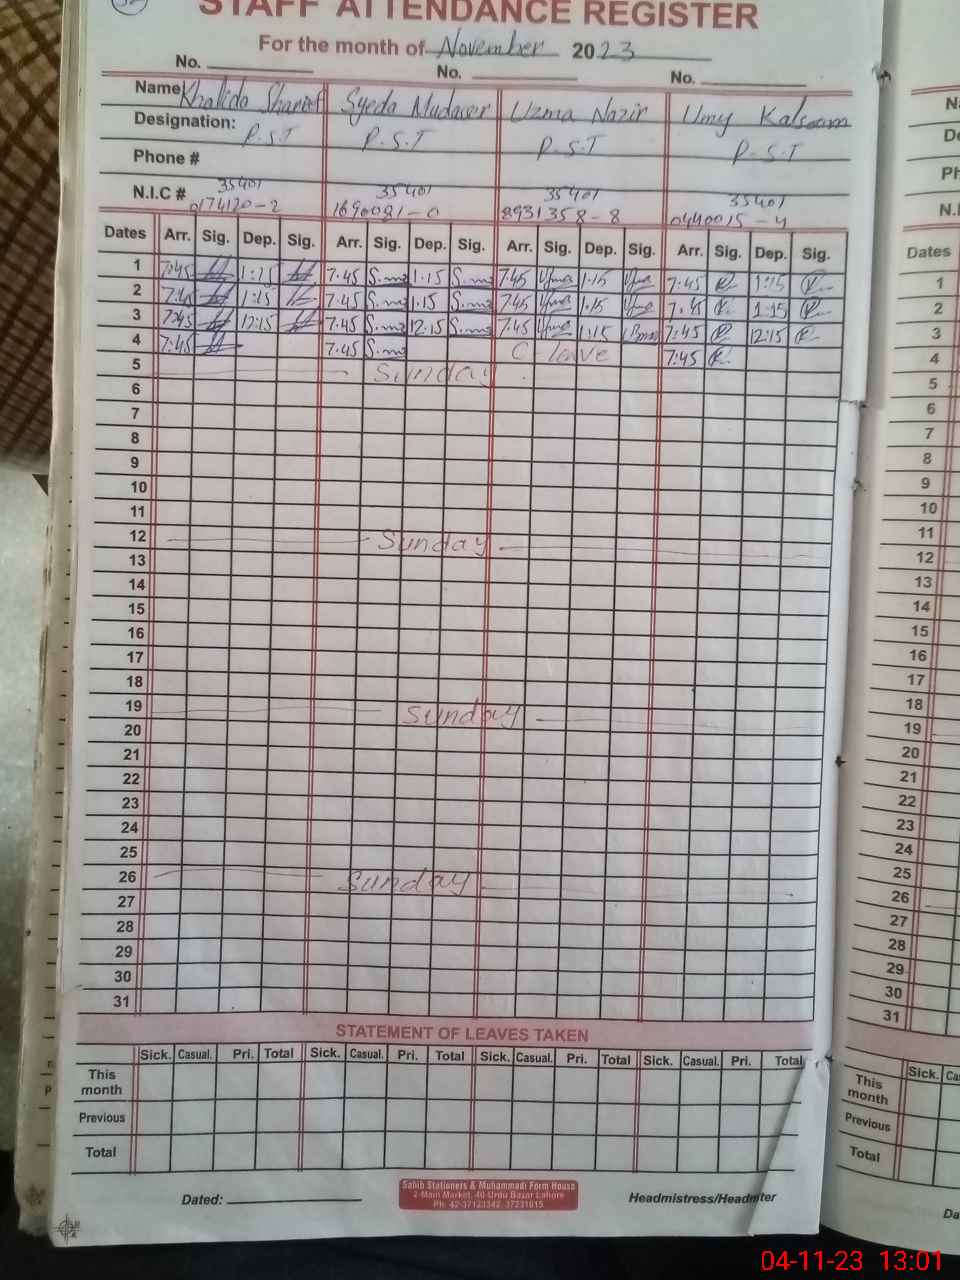 STAFF ATTENDANCE REGISTER
For the month of November 2023
No. No. No.
Name Khalida Sharief Syeda Mudaser Uzma Nazir Umy Kalsoom
Designation: P.S.T P.S.T P.S.T P.S.T
Phone #
N.I.C # 35401 35401 35401 35401
0174120-2 1690081-0 8931358-8 0440015-4
Dates Arr. Sig. Dep. Sig. Arr. Sig. Dep. Sig. Arr. Sig. Dep. Sig. Arr. Sig. Dep. Sig.
1 7:45 1:15 7.45 1.15 7:45 1:15 7:45 1:15
2 7:45 1:15 7.45 1.15 7:45 1:15 7:45 1:15
3 7:45 12:15 7.45 12.15 7:45 1:15 7:45 12:15
4 7:45 7.45 C-leave 7:45
5 Sunday
6
7
8
9
10
11
12 Sunday
13
14
15
16
17
18
19 Sunday
20
21
22
23
24
25
26 Sunday
27
28
29
30
31
STATEMENT OF LEAVES TAKEN
Sick. Casual. Pri. Total Sick. Casual. Pri. Total Sick. Casual. Pri. Total Sick. Casual. Pri. Total
This month
Previous
Total
Dated:
Sahib Stationers & Muhammadi Form House
2-Main Market, 40-Urdu Bazar Lahore
Ph: 42-37123342, 37231615
Headmistress/Headmter
Dates
1
2
3
4
5
6
7
8
9
10
11
12
13
14
15
16
17
18
19
20
21
22
23
24
25
26
27
28
29
30
31
Sick.
This month
Previous
Total
04-11-23 13:01